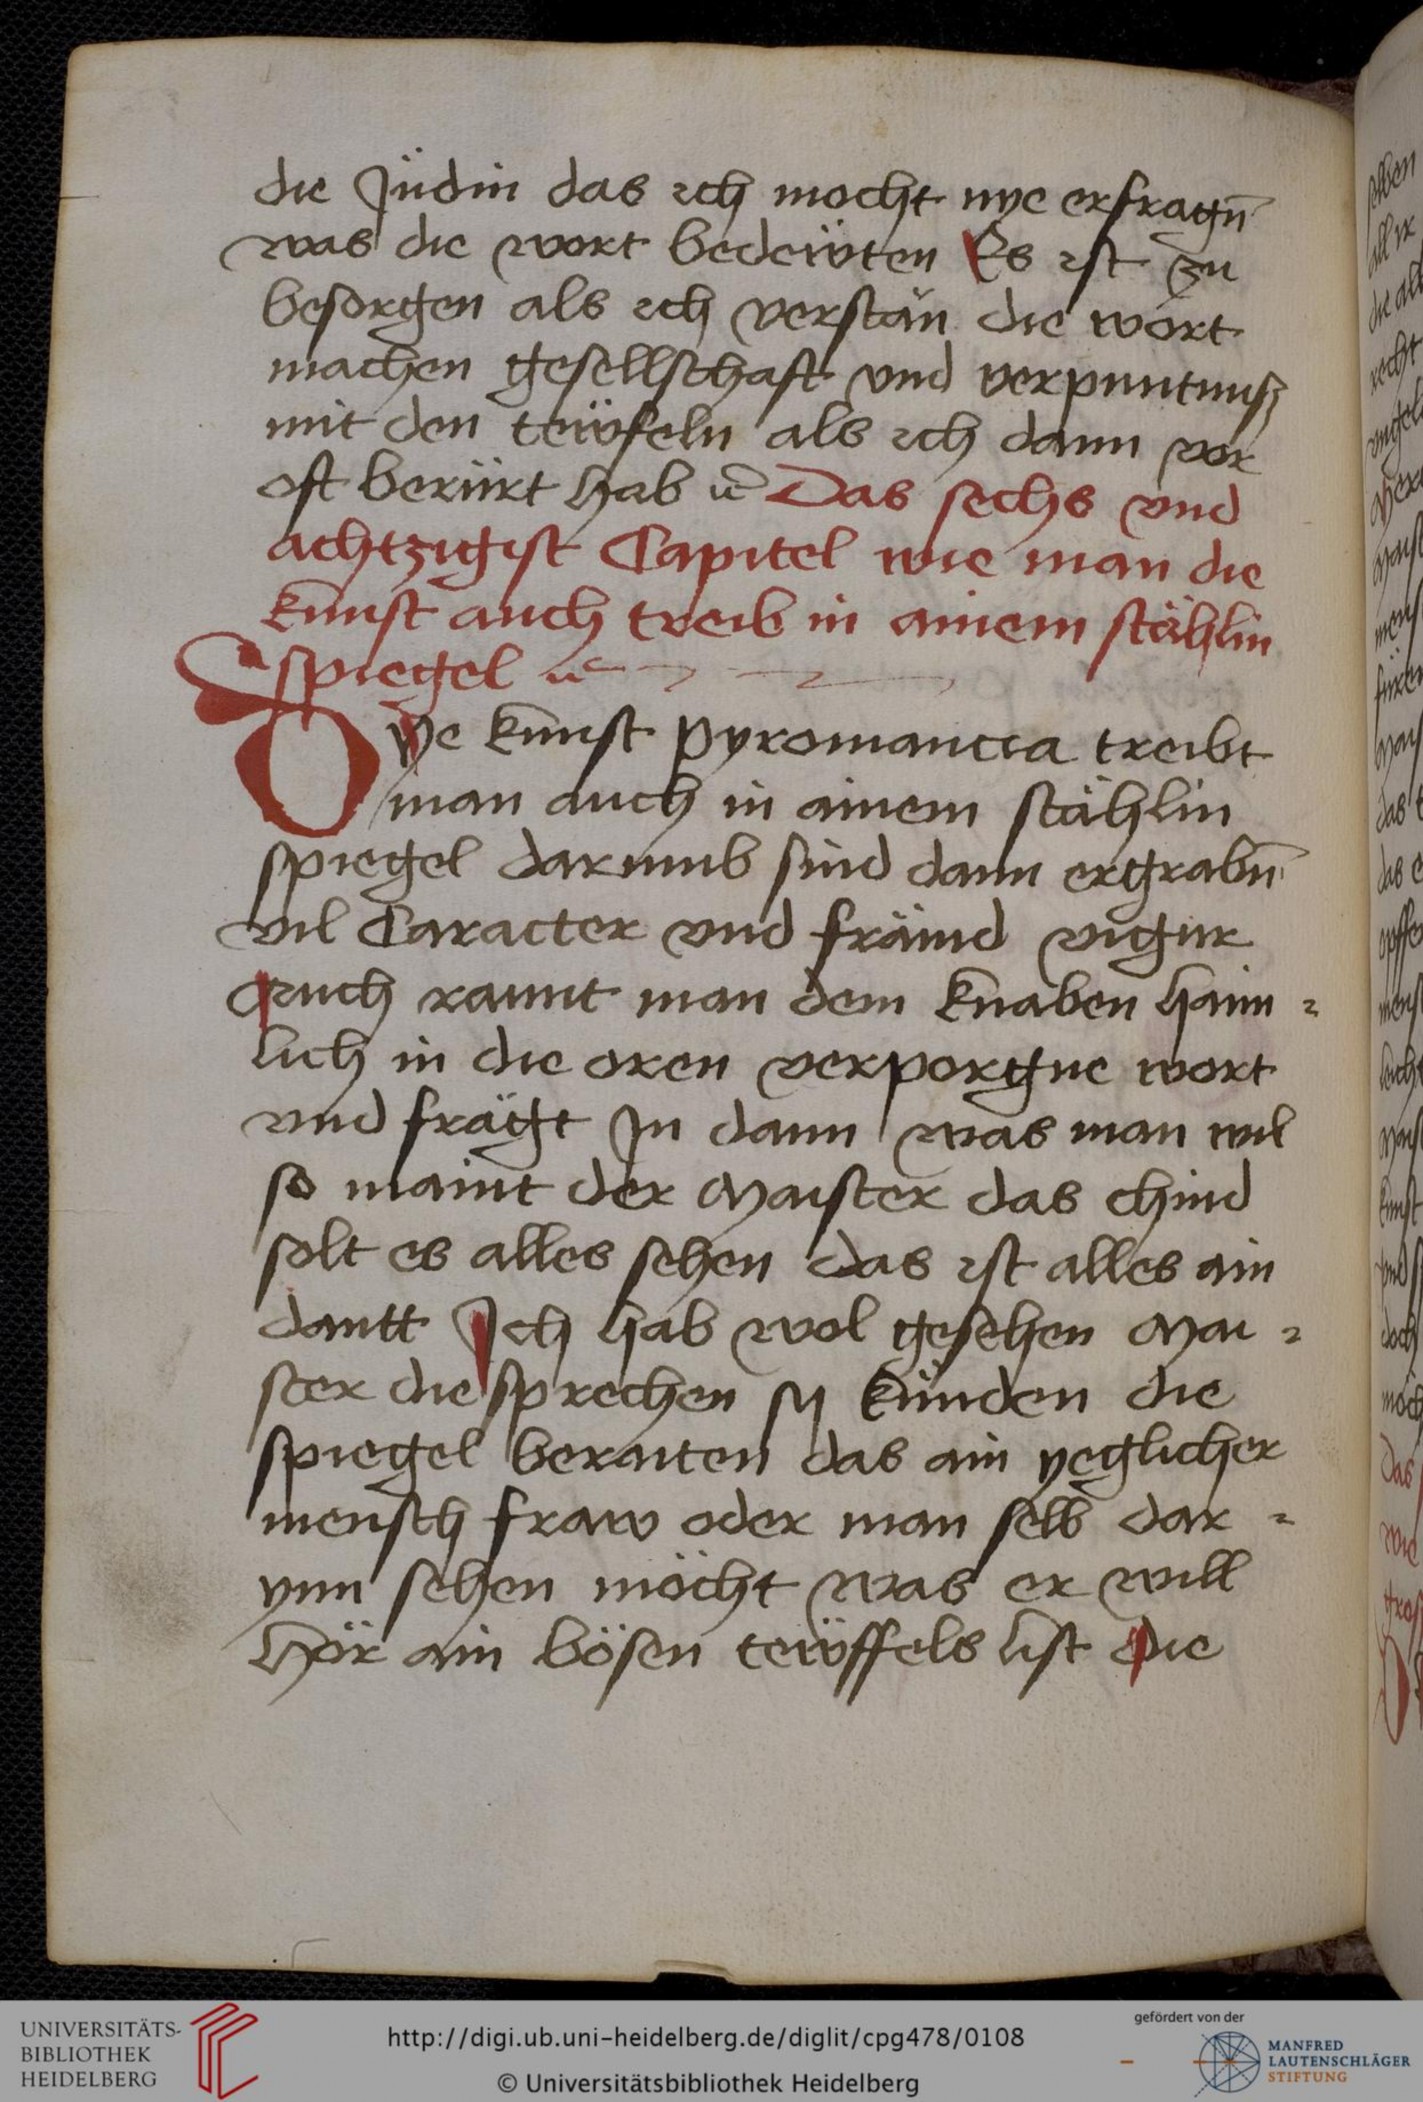 die Jüdin das ich mocht nye erfragn̄
was die wort bedewten Es ist zu
besorgen als ich verstän die wort
machen gesellschaft vnd verpuntnuß
mit den tewfeln als ich dann vor
oft berürt hab ꝛc Das sechs vnd
achtzigist Capitel wie man die
kunst auch treib in ainem stählin
spiegel ꝛc
Dye kunst pyromancia treibt
man auch in ainem stählin
spiegel darumb sind dann ergrabn̄
vil Caracter vnd främd vigur
Auch raunt man dem knaben haim=
lich in die oren verporgne wort
vnd frägt Jn dann was man wil
so maint der Maister das chind
solt es alles sehen das ist alles ain
dantt Ich hab wol gesehen Mai=
ster die sprechen sy künden die
spiegel beraiten das ain yeglicher
mensch fraw oder man selb dar=
ynn sehen möcht was er will
Hör ain bösen tewffels list die
UNIVERSITÄTS-
BIBLIOTHEK
HEIDELBERG
http://digi.ub.uni-heidelberg.de/diglit/cpg478/0108
© Universitätsbibliothek Heidelberg
gefördert von der
MANFRED
LAUTENSCHLÄGER
STIFTUNG